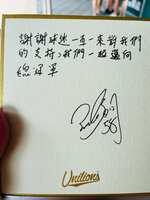 謝謝球迷一直一來對我們
的支持，我們一起邁向
總冠軍
58
Unilions